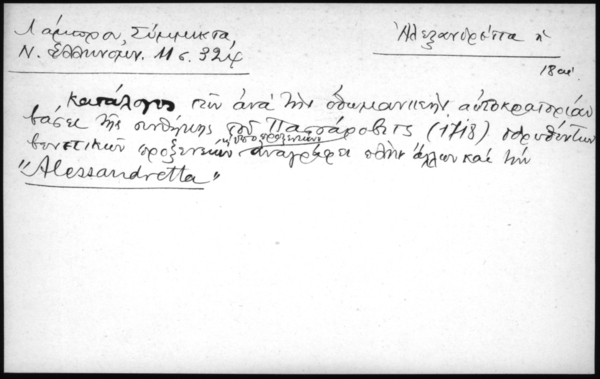 Λάμπρου, Σύμμικτα,
Ν. Ελληνομν. 11 σ. 32
Ἀλεξανδρέττα ἡ
18 αἰ.
Κατάλογος τῶν ἀνὰ τὴν ὀθωμανικὴν αὐτοκρατορίαν
βάσει τῆς συνθήκης τοῦ Πασσάροβιτς (1718) ἱδρυθέντων
βενετικῶν προξενείων ἀναγράφει πλὴν ἄλλων καὶ τὴν
"Alessandretta"